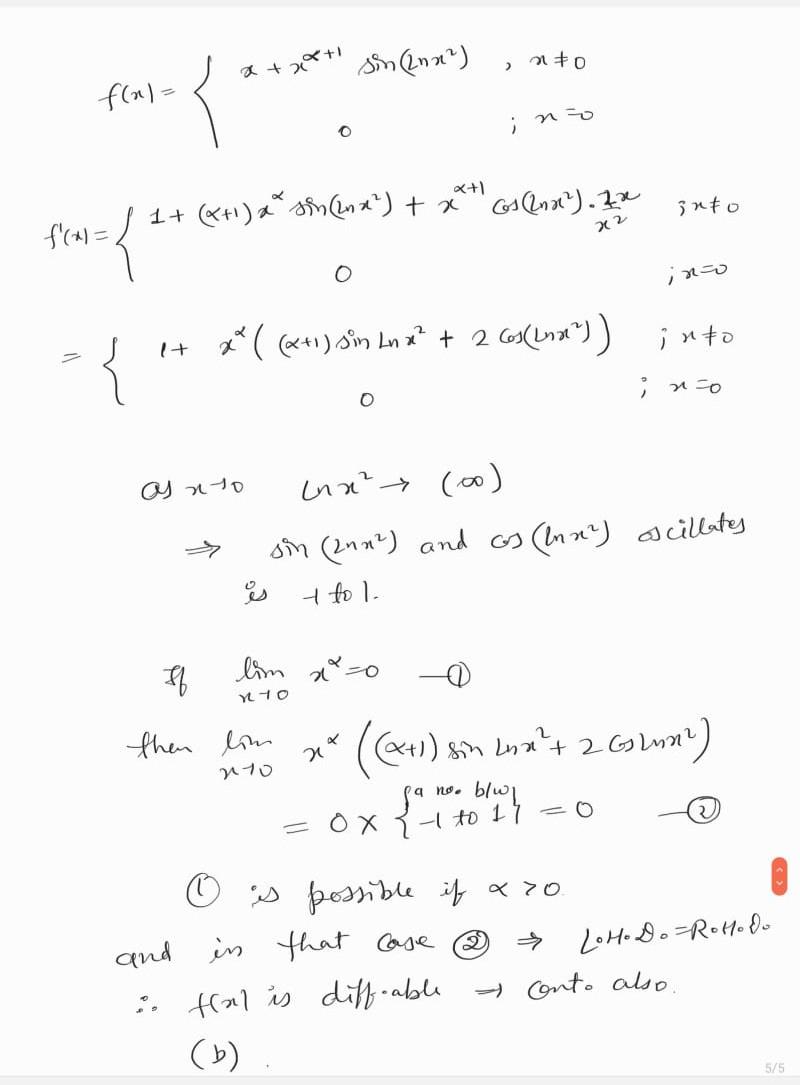 f(x) = { x + x^(α+1) sin(ln x²) , x ≠ 0
0 ; x = 0
f'(x) = { 1 + (α+1) x^α sin(ln x²) + x^(α+1) cos(ln x²) · 2x/x² ; x ≠ 0
0 ; x = 0
= { 1 + x^α ( (α+1) sin ln x² + 2 cos(ln x²) ) ; x ≠ 0
0 ; x = 0
as x→0 ln x² → (∞)
⇒ sin (ln x²) and cos (ln x²) oscillates
is -1 to 1.
If lim x→0 x^α = 0 —①
then lim x→0 x^α ( (α+1) sin ln x² + 2 cos ln x² )
= 0 × { a no. b/w -1 to 1 } = 0 —②
① is possible if α > 0
and in that case ② ⇒ L.H.D. = R.H.D.
∴ f(x) is diff.able → cont. also.
(b) .
5/5